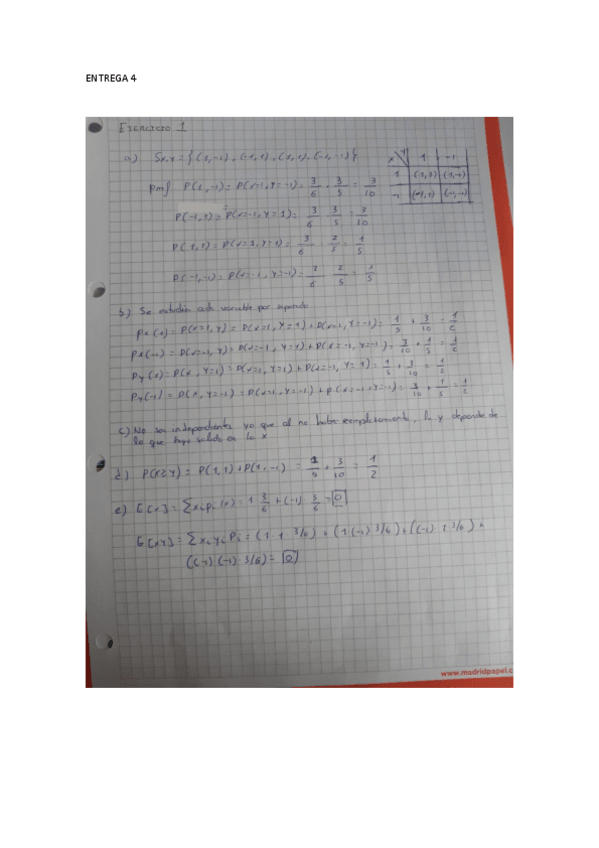 ENTREGA 4
EJERCICIO 1
a) Sx,y = {(1,-1), (-1,1), (1,1), (-1,-1)}
x Y 1 -1
1 (1,1) (1,-1)
-1 (-1,1) (-1,-1)
pmf P(1,-1) = P(x=1, Y=-1) = 3/6 · 3/5 = 3/10
P(-1,1) = P(x=-1, Y=1) = 3/6 3/5 = 3/10
P(1,1) = P(x=1, Y=1) = 3/6 2/5 = 1/5
P(-1,-1) = P(x=-1, Y=-1) = 2/5 = 1/5
b) Se estudian cada variable por separado
P(x=1, Y) = P(x=1, Y=1) + P(x=1, Y=-1) = 1/5 + 3/10 = 1/2
P(x=-1, Y) = P(x=-1, Y=1) + P(x=-1, Y=-1) = 3/10 + 1/5 = 1/2
P(x, Y=1) = P(x=1, Y=1) + P(x=-1, Y=1) = 1/5 + 3/10 = 1/2
Py(-1) = P(x, Y=-1) = P(x=1, Y=-1) + P(x=-1, Y=-1) = 3/10 + 1/5 = 1/2
c) No son independientes ya que al no haber reemplazamiento, la y depende de
lo que haya salido en la x
d) P(X≥Y) = P(1,1) + P(1,-1) = 1/5 + 3/10 = 1/2
e) E[X] = ∑ xi pi (x) = 1 3/6 + (-1) 3/6 = 0
E[XY] = ∑ xi yi Pi = (1·1 3/6) + (1(-1) 3/6) + ((-1)·1 3/6) +
((-1)·(-1)·3/6) = 0
www.madridpapel.c